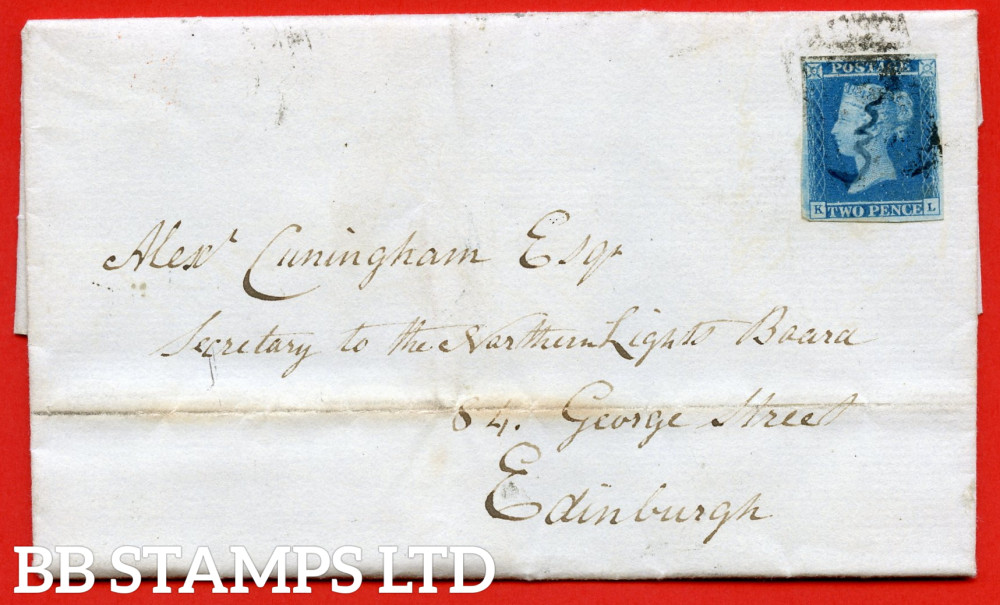 POSTAGE
K TWO PENCE L
Alexr Cuningham Esqr
Secretary to the Northern Lights Board
84. George Street
Edinburgh
BB STAMPS LTD